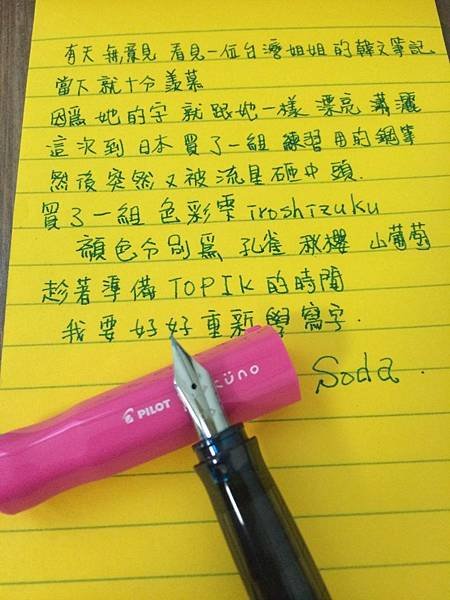 有天 無意見 看見一位台灣姐姐的韓文筆記.
當下就十分羨慕
因為她的字 就跟她一樣 漂亮 瀟灑
這次到日本買了一組 練習用的鋼筆
然後突然又被流星砸中頭.
買了一組色彩雫 iroshizuku
顏色分別為 孔雀 秋櫻 山葡萄
趁著準備 TOPIK 的時間
我要好好重新學寫字.
Soda.
PILOT küno